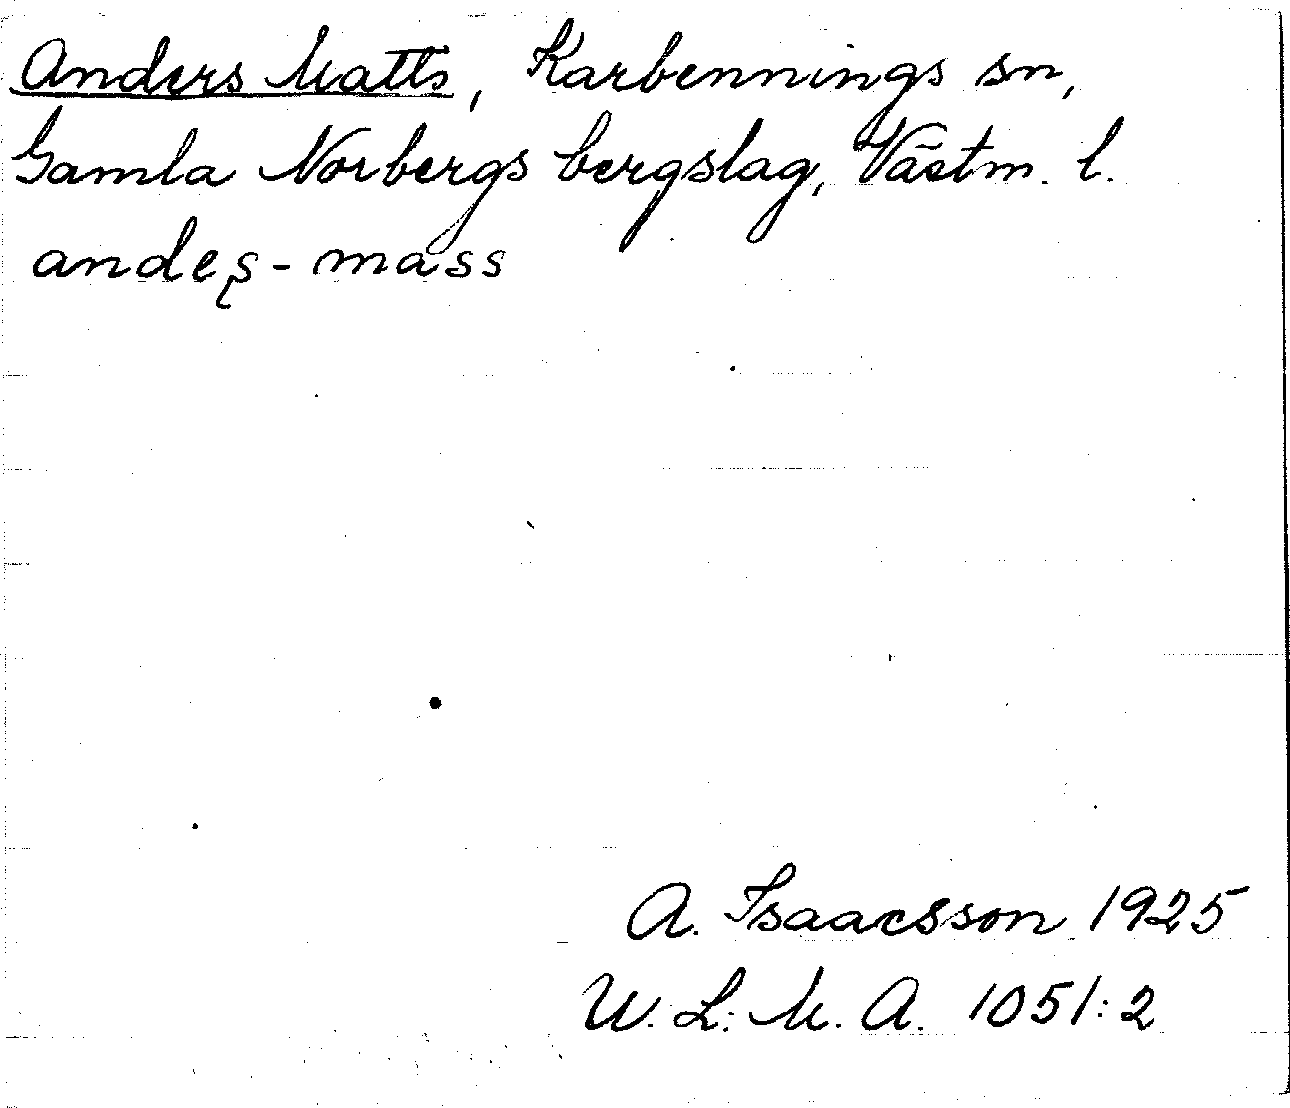 Anders Matts, Karbennings sn,
Gamla Norbergs bergslag, Västm. l.
andeş-mass
A. Isaacsson 1925
U.L.M.A. 1051:2